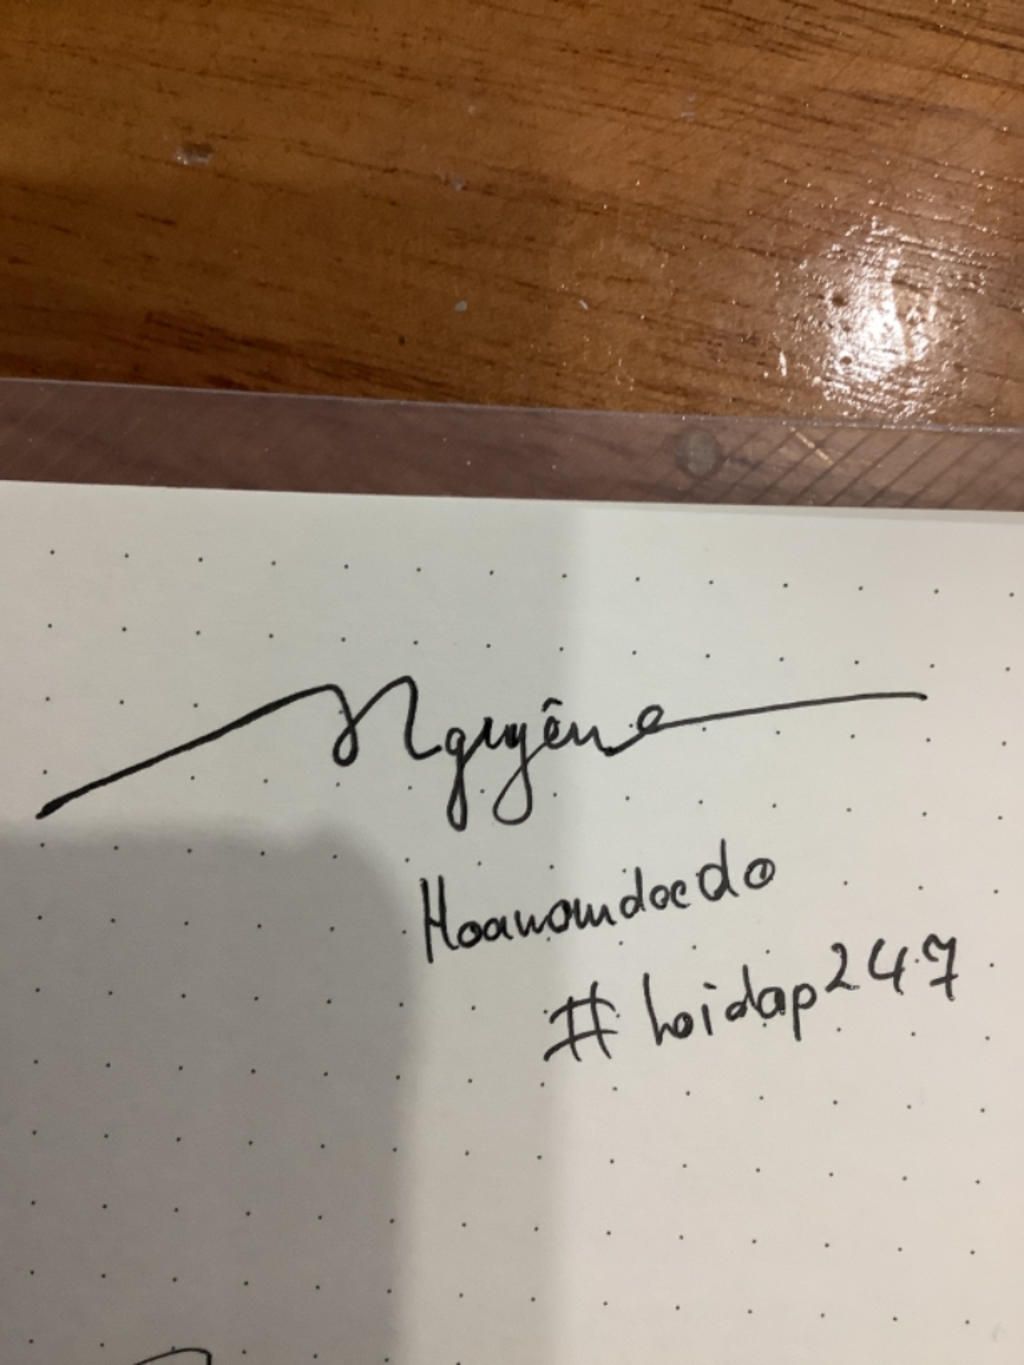 Nguyên
Hoanamdocdo
#hoidap247